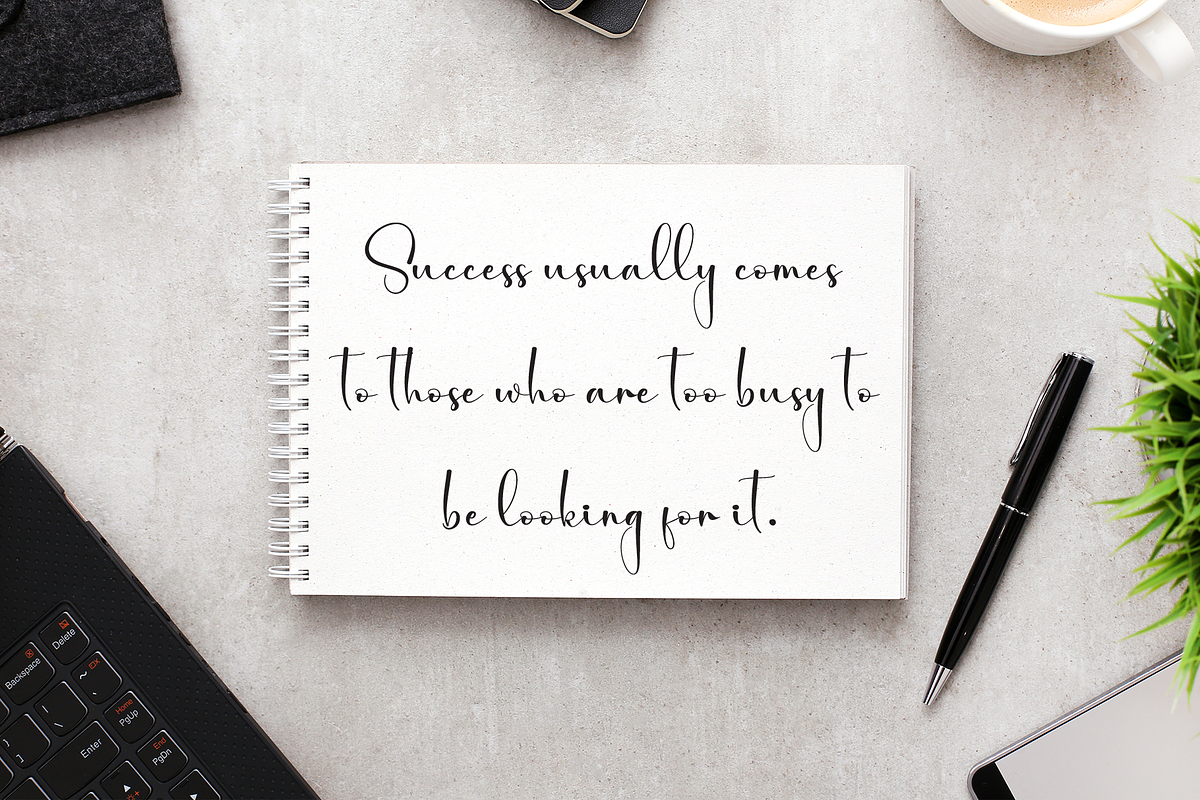 Success usually comes
to those who are too busy to
be looking for it.
Delete
Backspace
Home
PgUp
Enter
End
PgDn